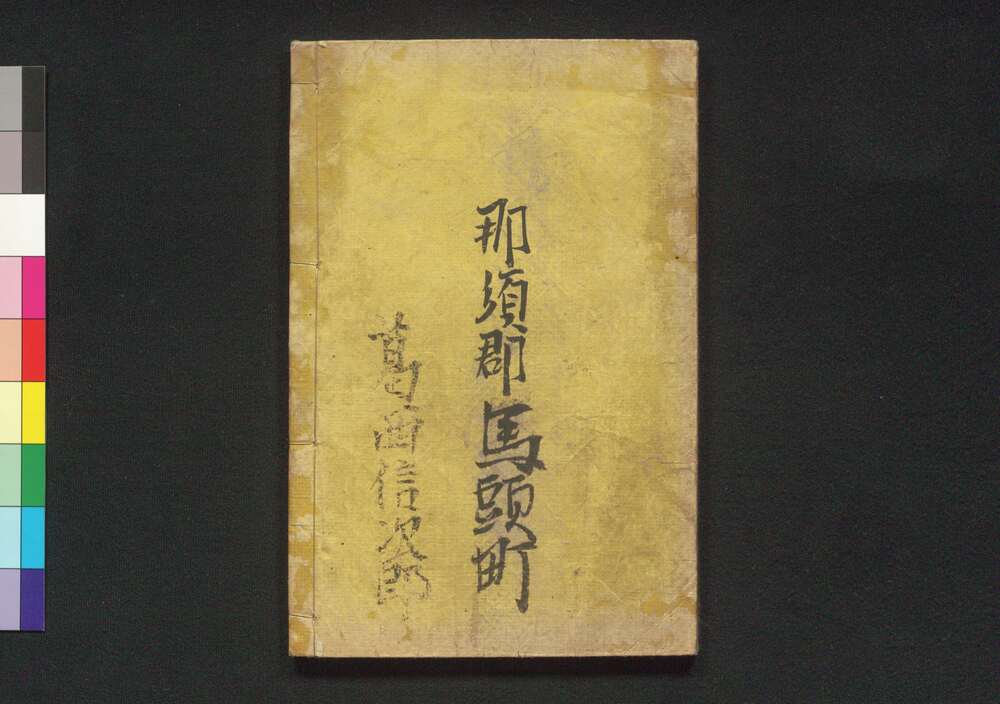 那須郡馬頭町
葛西信次郎